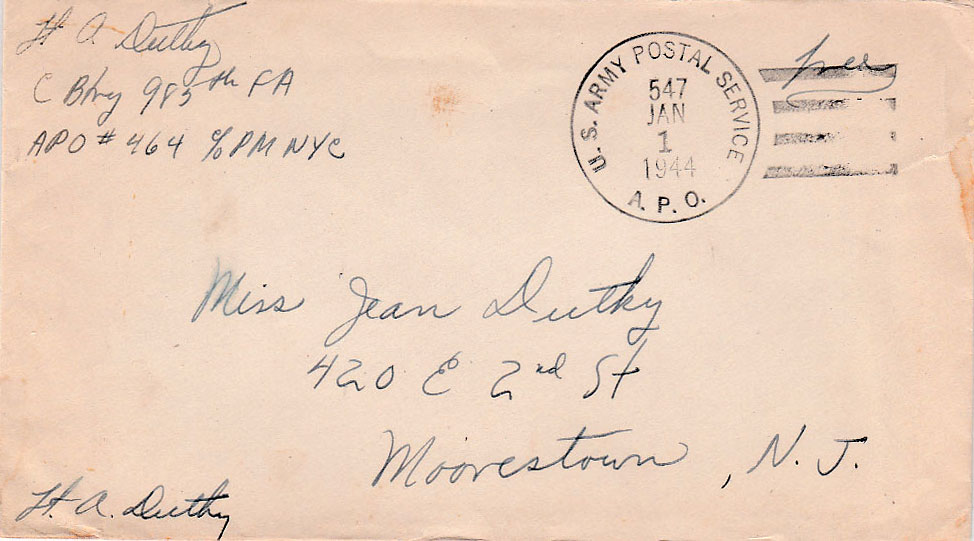 Lt A Dutky
C Btry 985th FA
APO # 464 c/o PM NYC
U. S. ARMY POSTAL SERVICE
547
JAN
1
1944
A. P. O.
Free
Miss Jean Dutky
420 E 2nd St
Moorestown, N. J.
Lt. A. Dutky